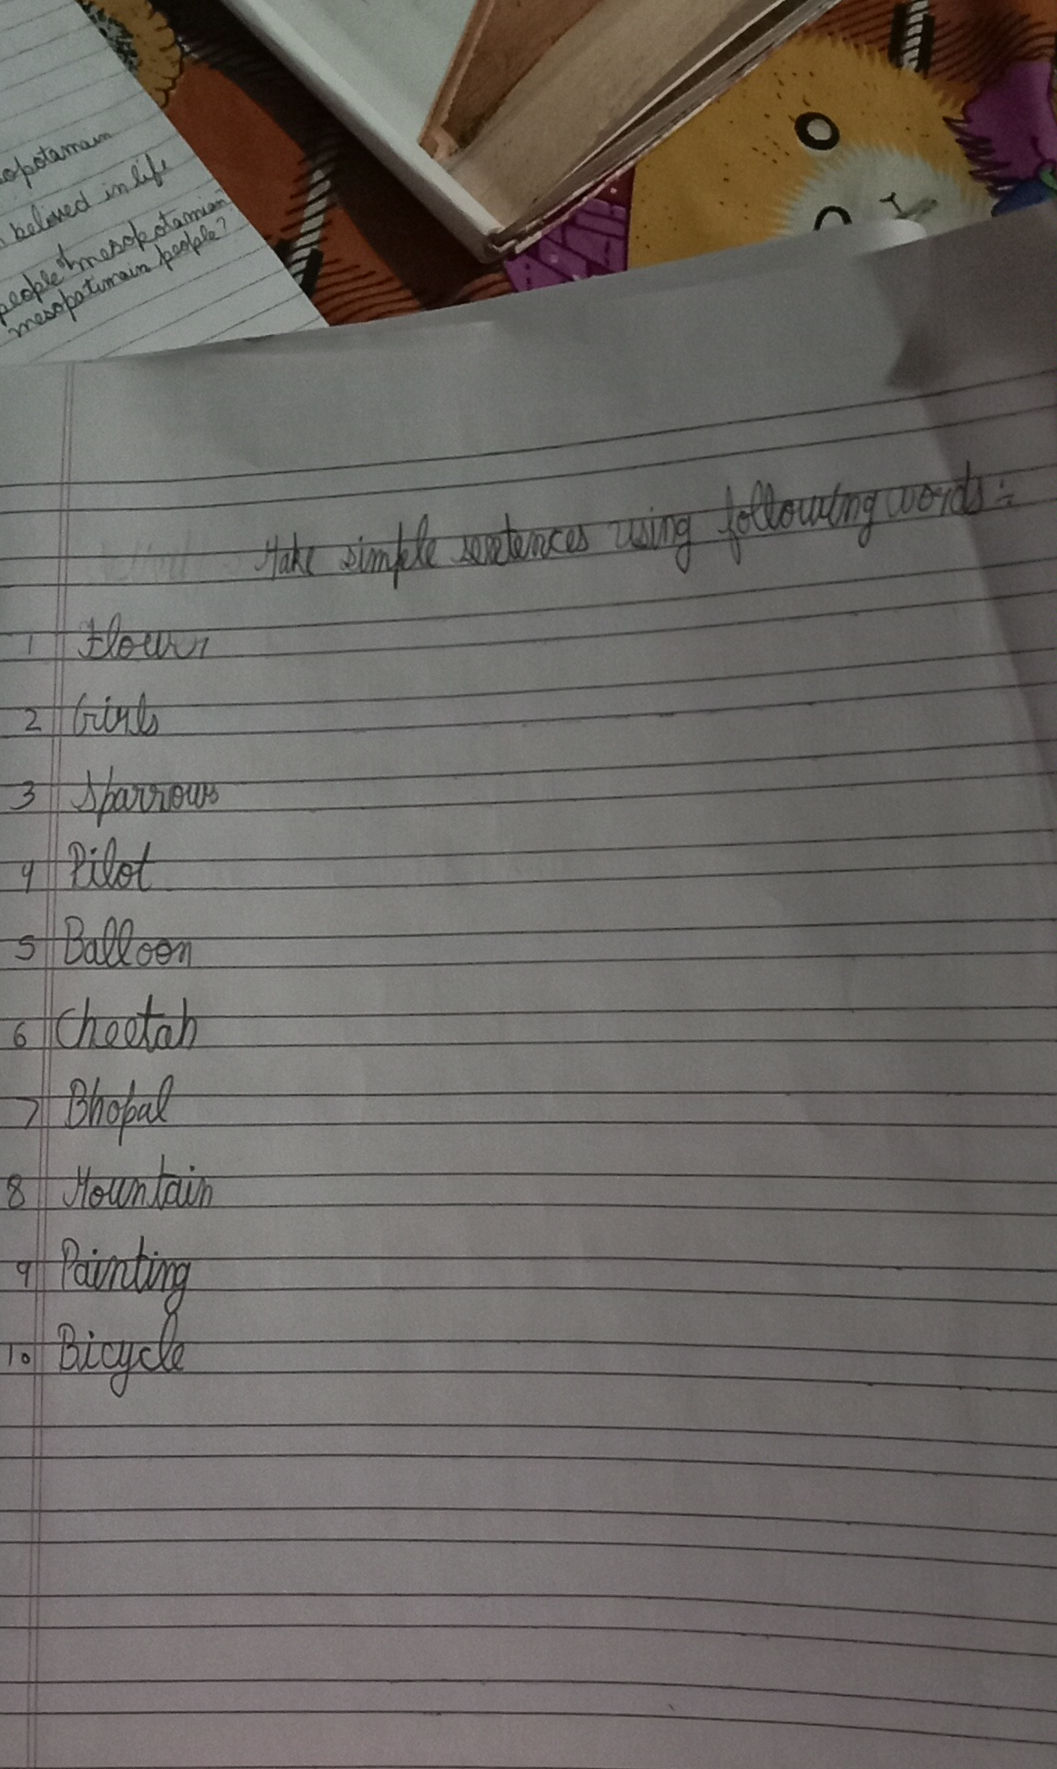 beleived in life
people of mesopotamian
mesopatimain people?
Make simple sentences using following words :-
1 Flower
2 Girls
3 Sparrows
4 Pilot
5 Balloon
6 Cheetah
7 Bhopal
8 Mountain
9 Painting
10 Bicycle